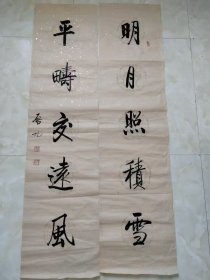 明月照積雪
平疇交遠風